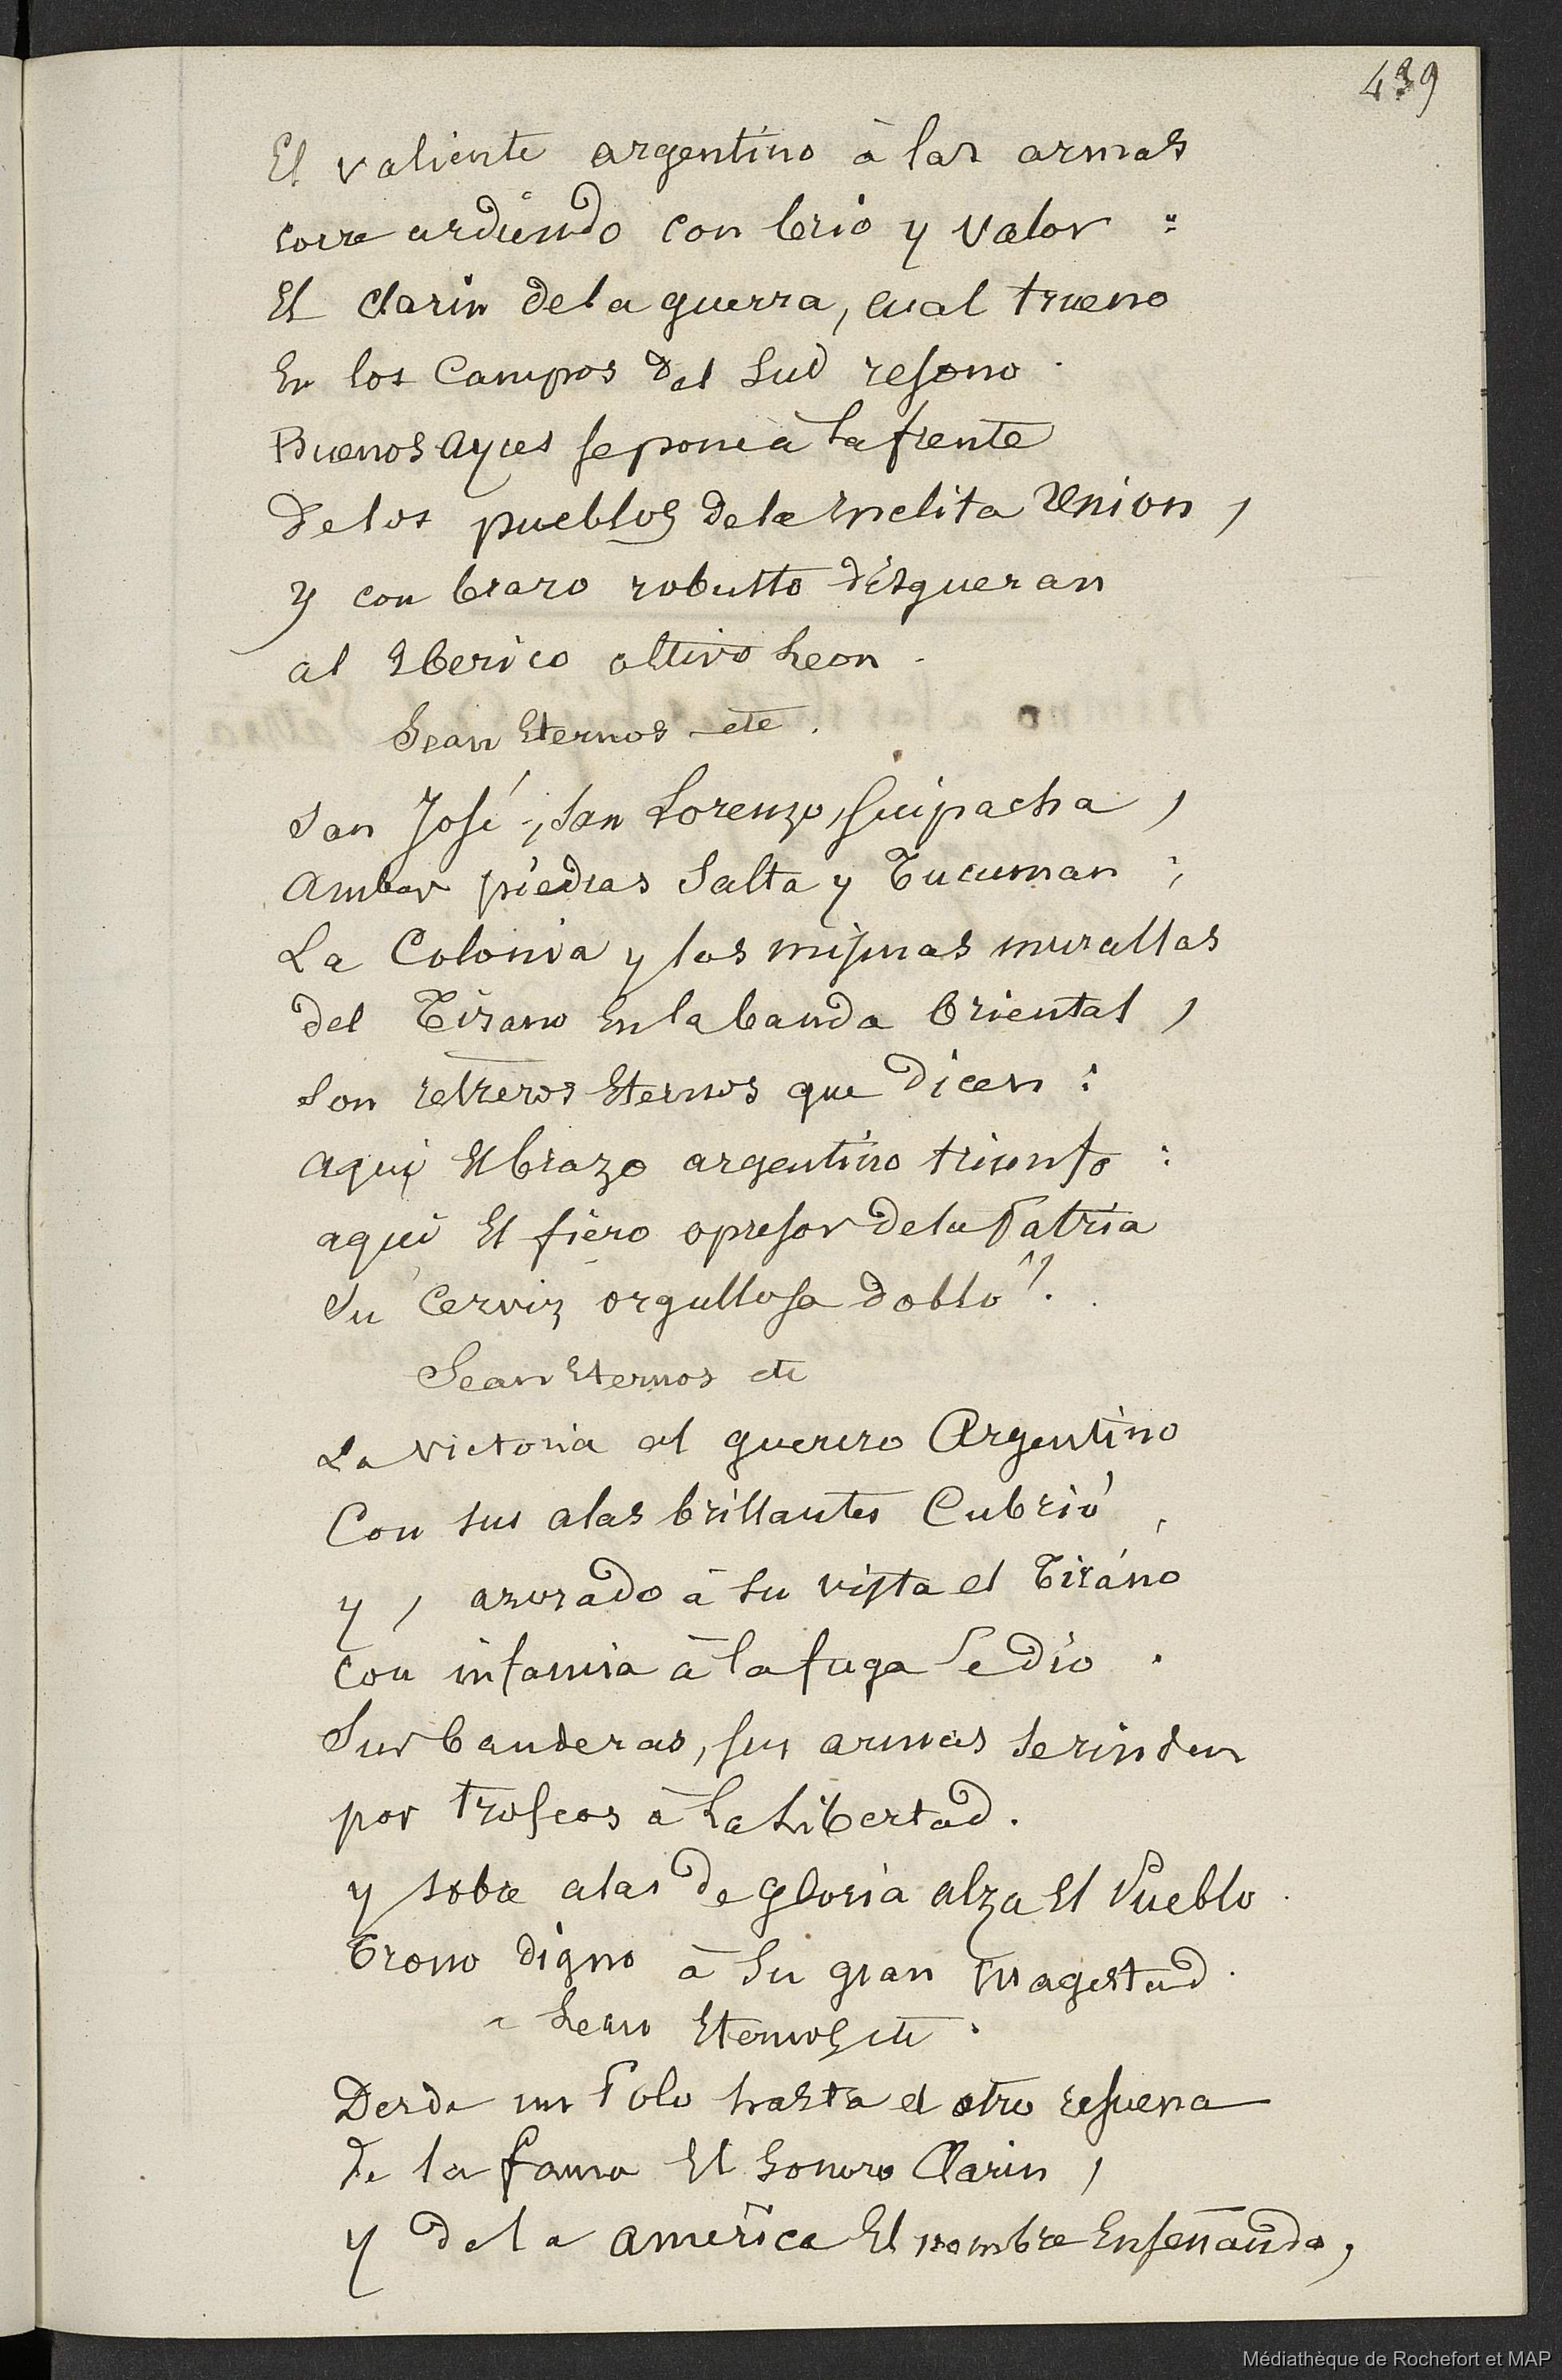 439
El valiente argentino à las armas
corre ardiendo con brio y valor :
El clarin dela guerra, cual trueno
En los Campos del Sud resono .
Buenos ayres se pone à la frente
De los pueblos dela Inclita Union ,
y con brazo robusto desgueran
al Iberico altivo Leon .
Sean Eternos etc .
San José, San Lorenzo, Suipacha ,
Ambas piedras Salta y Tucuman ;
La Colonia y las mismas murallas
del Tirano En la banda Oriental ,
Son letreros Eternos que Dicen :
aqui El brazo argentino triunfo :
aqui El fiero opresor dela Patria
Su Cerviz orgullosa doblo".
Sean Eternos etc
La victoria al guerrero Argentino
Con sus alas brillantes Cubrió ,
y , azorado à su vista el Tiráno
Con infamia à la fuga Se dio .
Sus banderas, sus armas se rinden
por trofeos à La Libertad .
y sobre alas de gloria alza El Pueblo
Trono digno à Su gran Magestad .
Sean Eternos etc .
Desde un Polo hasta el otro resuena
de la fama El Sonoro Clarin ,
y de la america El nombre Enseñando ,
Médiathèque de Rochefort et MAP